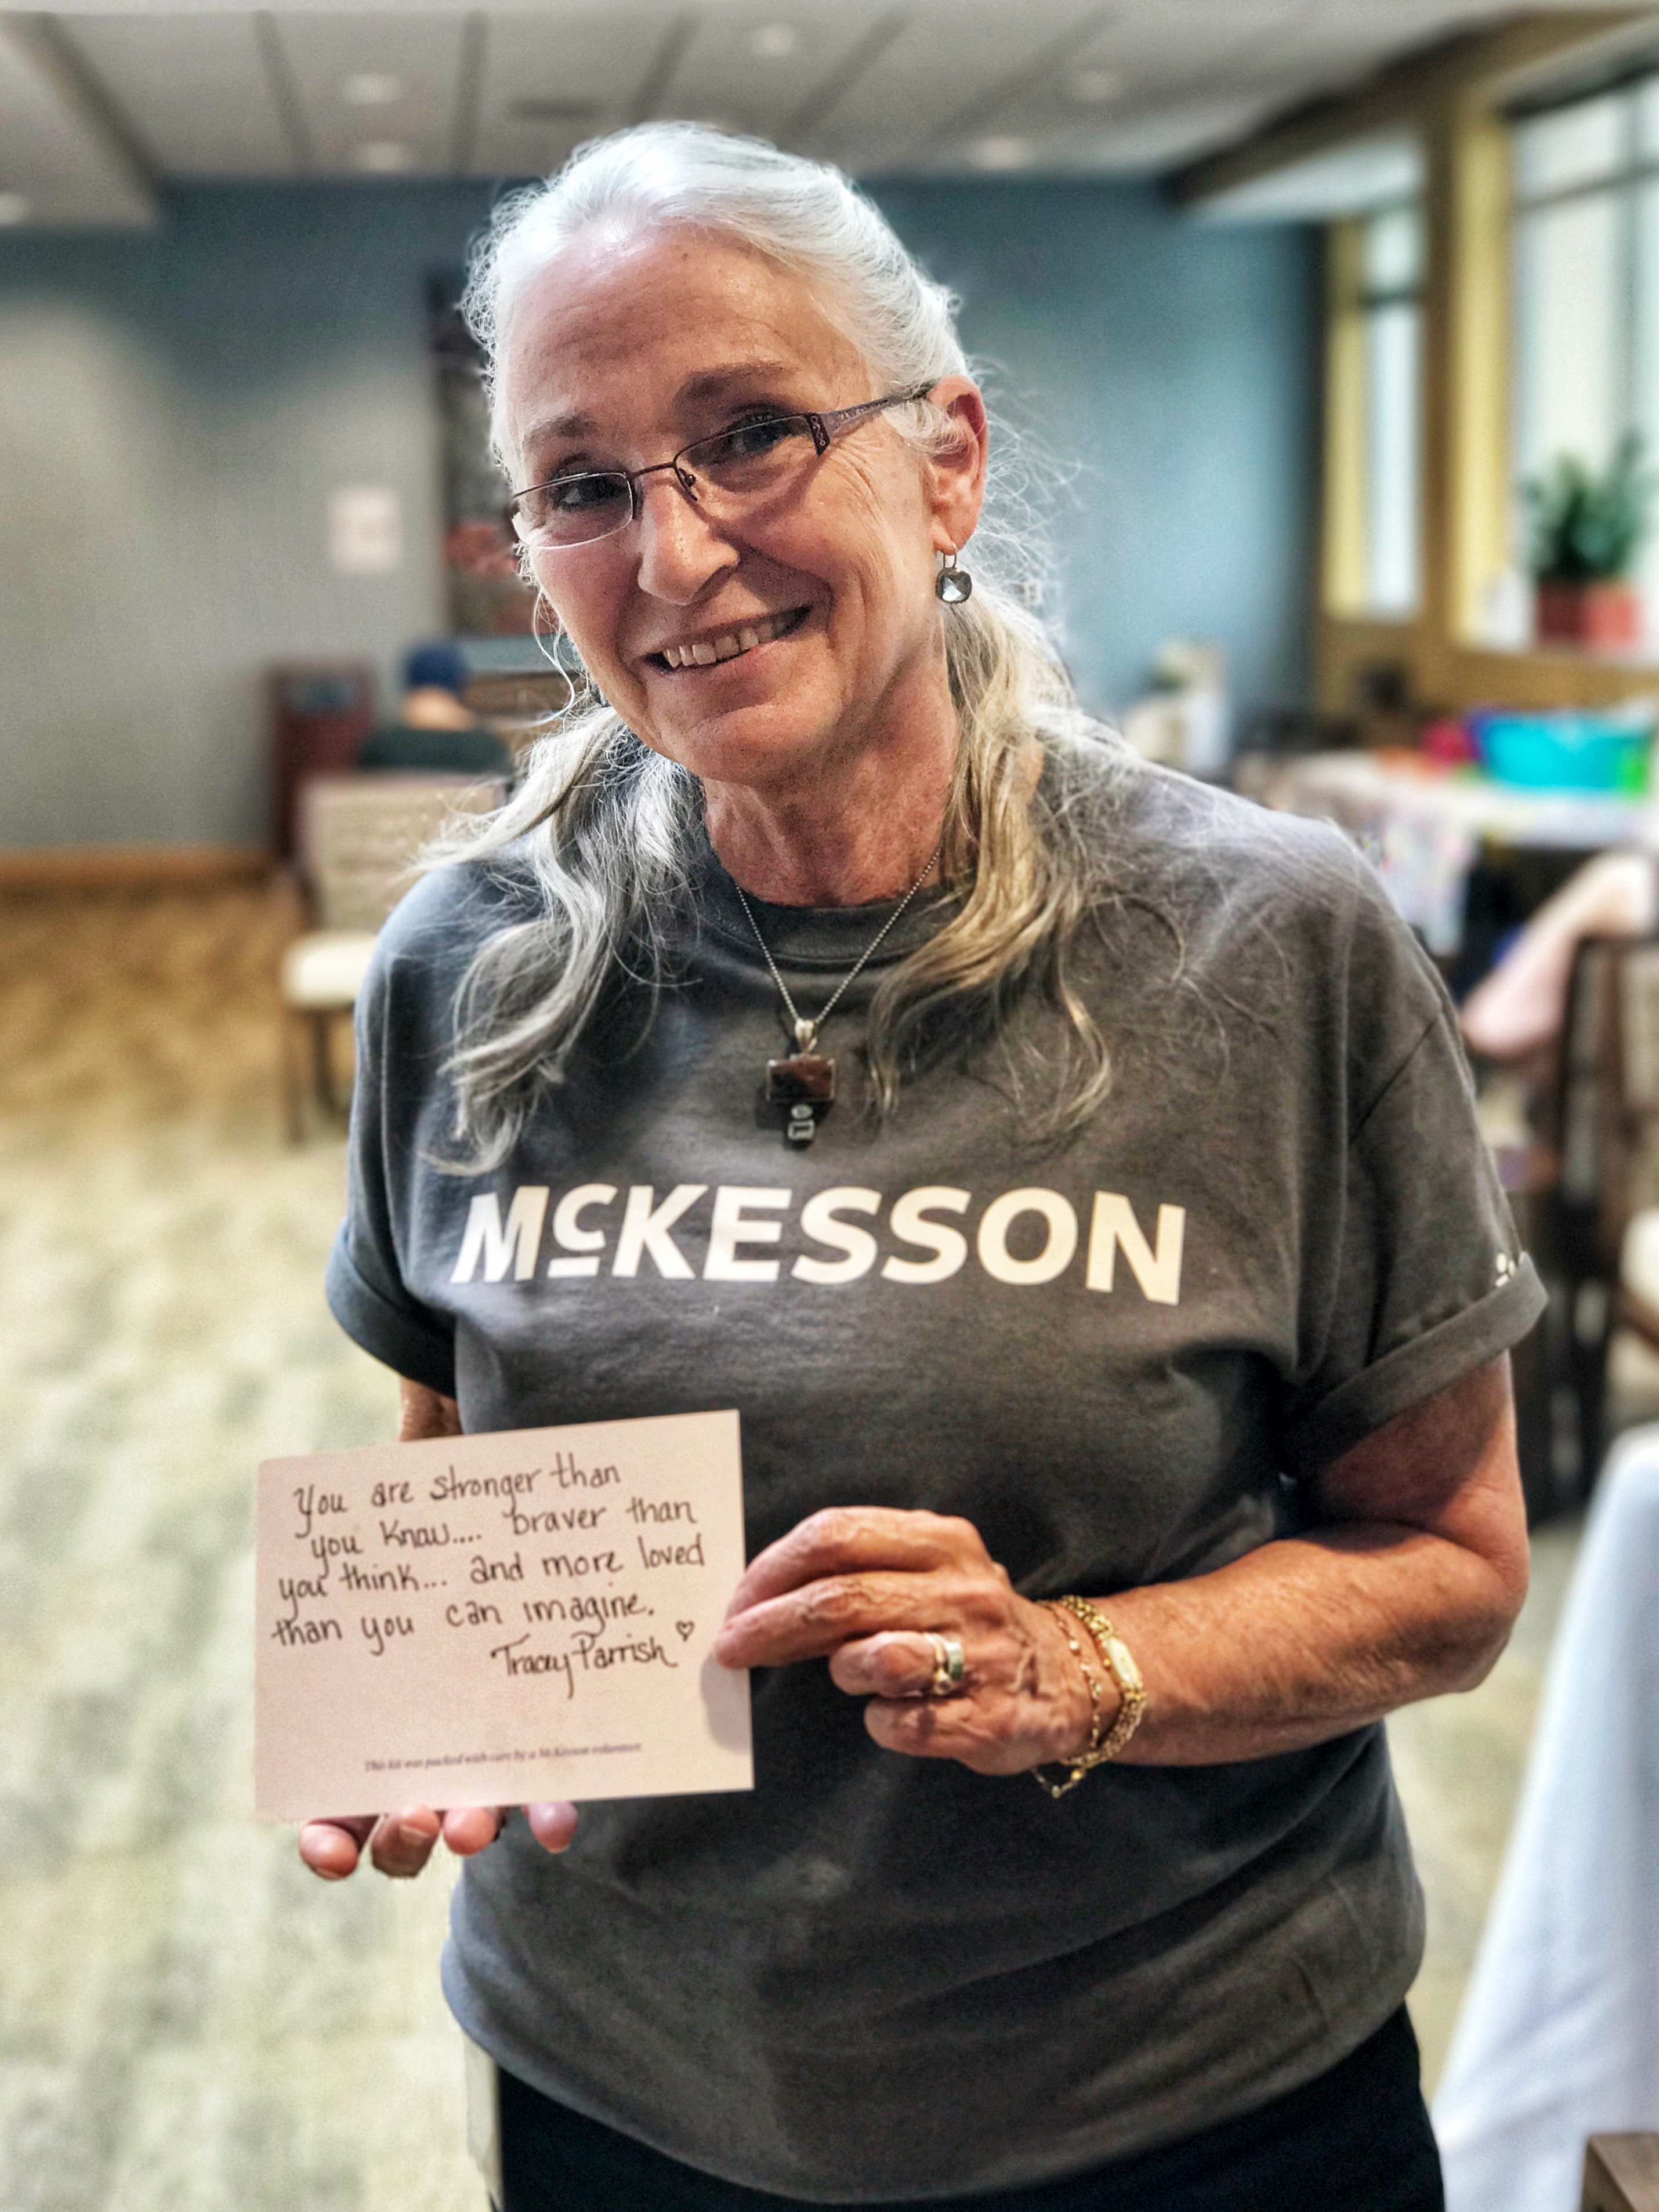 McKESSON
You are stronger than
you know.... braver than
you think... and more loved
than you can imagine.
Tracey Parrish ♡
This kit was packed with care by a McKesson volunteer.